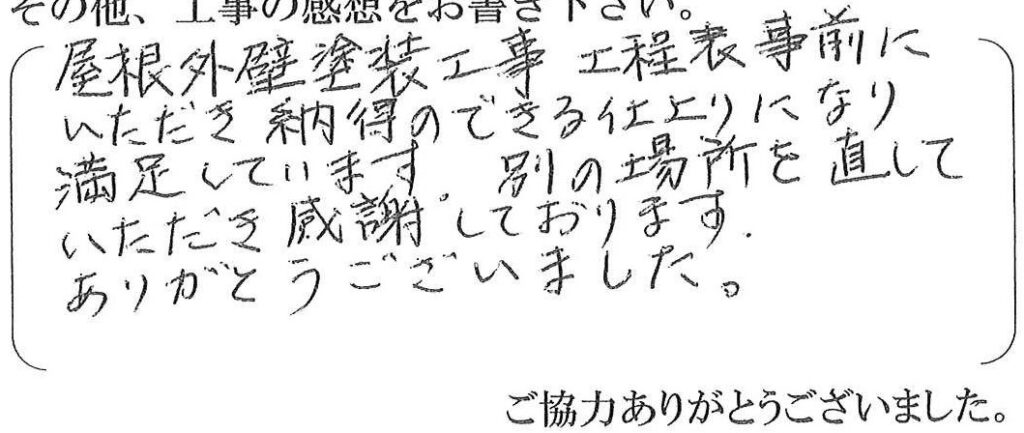 その他、工事の感想をお書き下さい。
屋根外壁塗装工事 工程表事前に
いただき納得のできる仕上りになり
満足しています。別の場所を直して
いただき感謝しております.
ありがとうございました。
ご協力ありがとうございました。